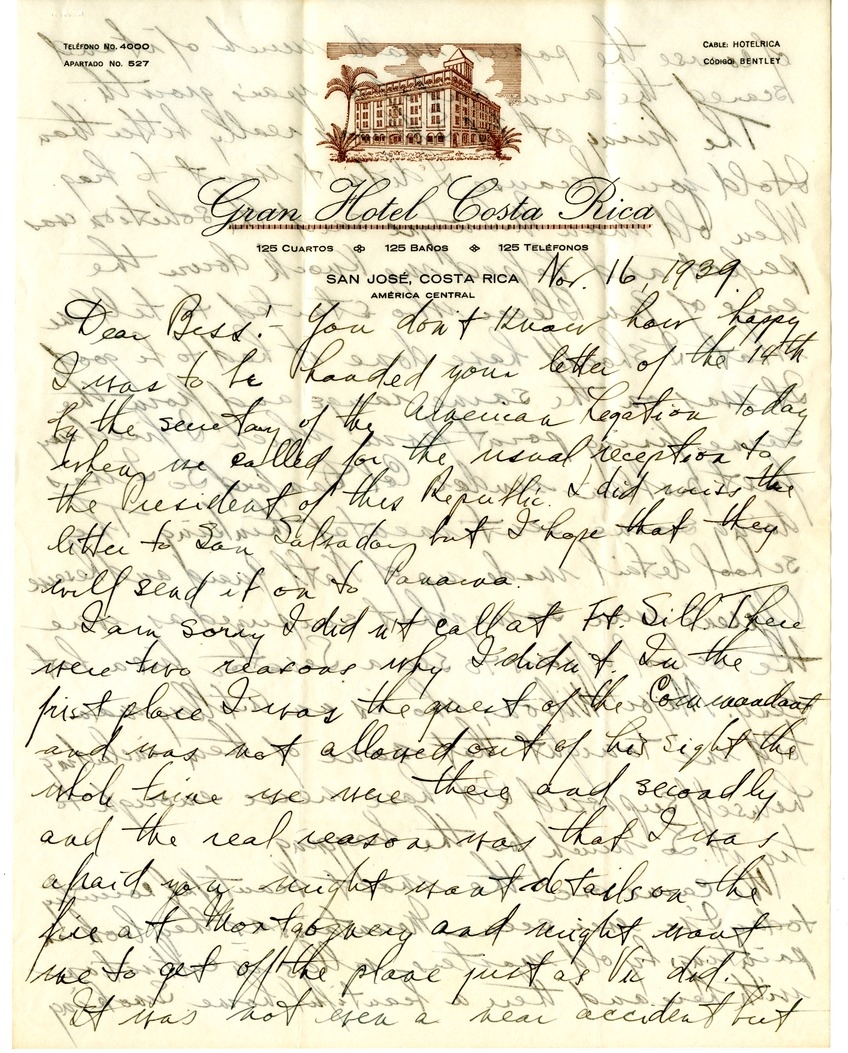 TELÉFONO No. 4000
APARTADO No. 527
CABLE: HOTELRICA
CÓDIGO: BENTLEY
Gran Hotel Costa Rica
125 CUARTOS 125 BAÑOS 125 TELÉFONOS
SAN JOSÉ, COSTA RICA Nov. 16, 1939.
AMÉRICA CENTRAL
Dear Bess:- You don't know how happy
I was to be handed your letter of the 14th
by the secretary of the American Legation today
when we called for the usual reception to
the President of this Republic. I did miss the
letter to San Salvador but I hope that they
will send it on to Panama.
I am sorry I didn't call at Ft. Sill. There
were two reasons why I didn't. In the
first place I was the guest of the Commandant
and was not allowed out of his sight the
whole time we were there and secondly
and the real reason was that I was
afraid you might want details on the
fire at Montgomery and might want
me to get off the plane just as Vic did.
It was not even a near accident but